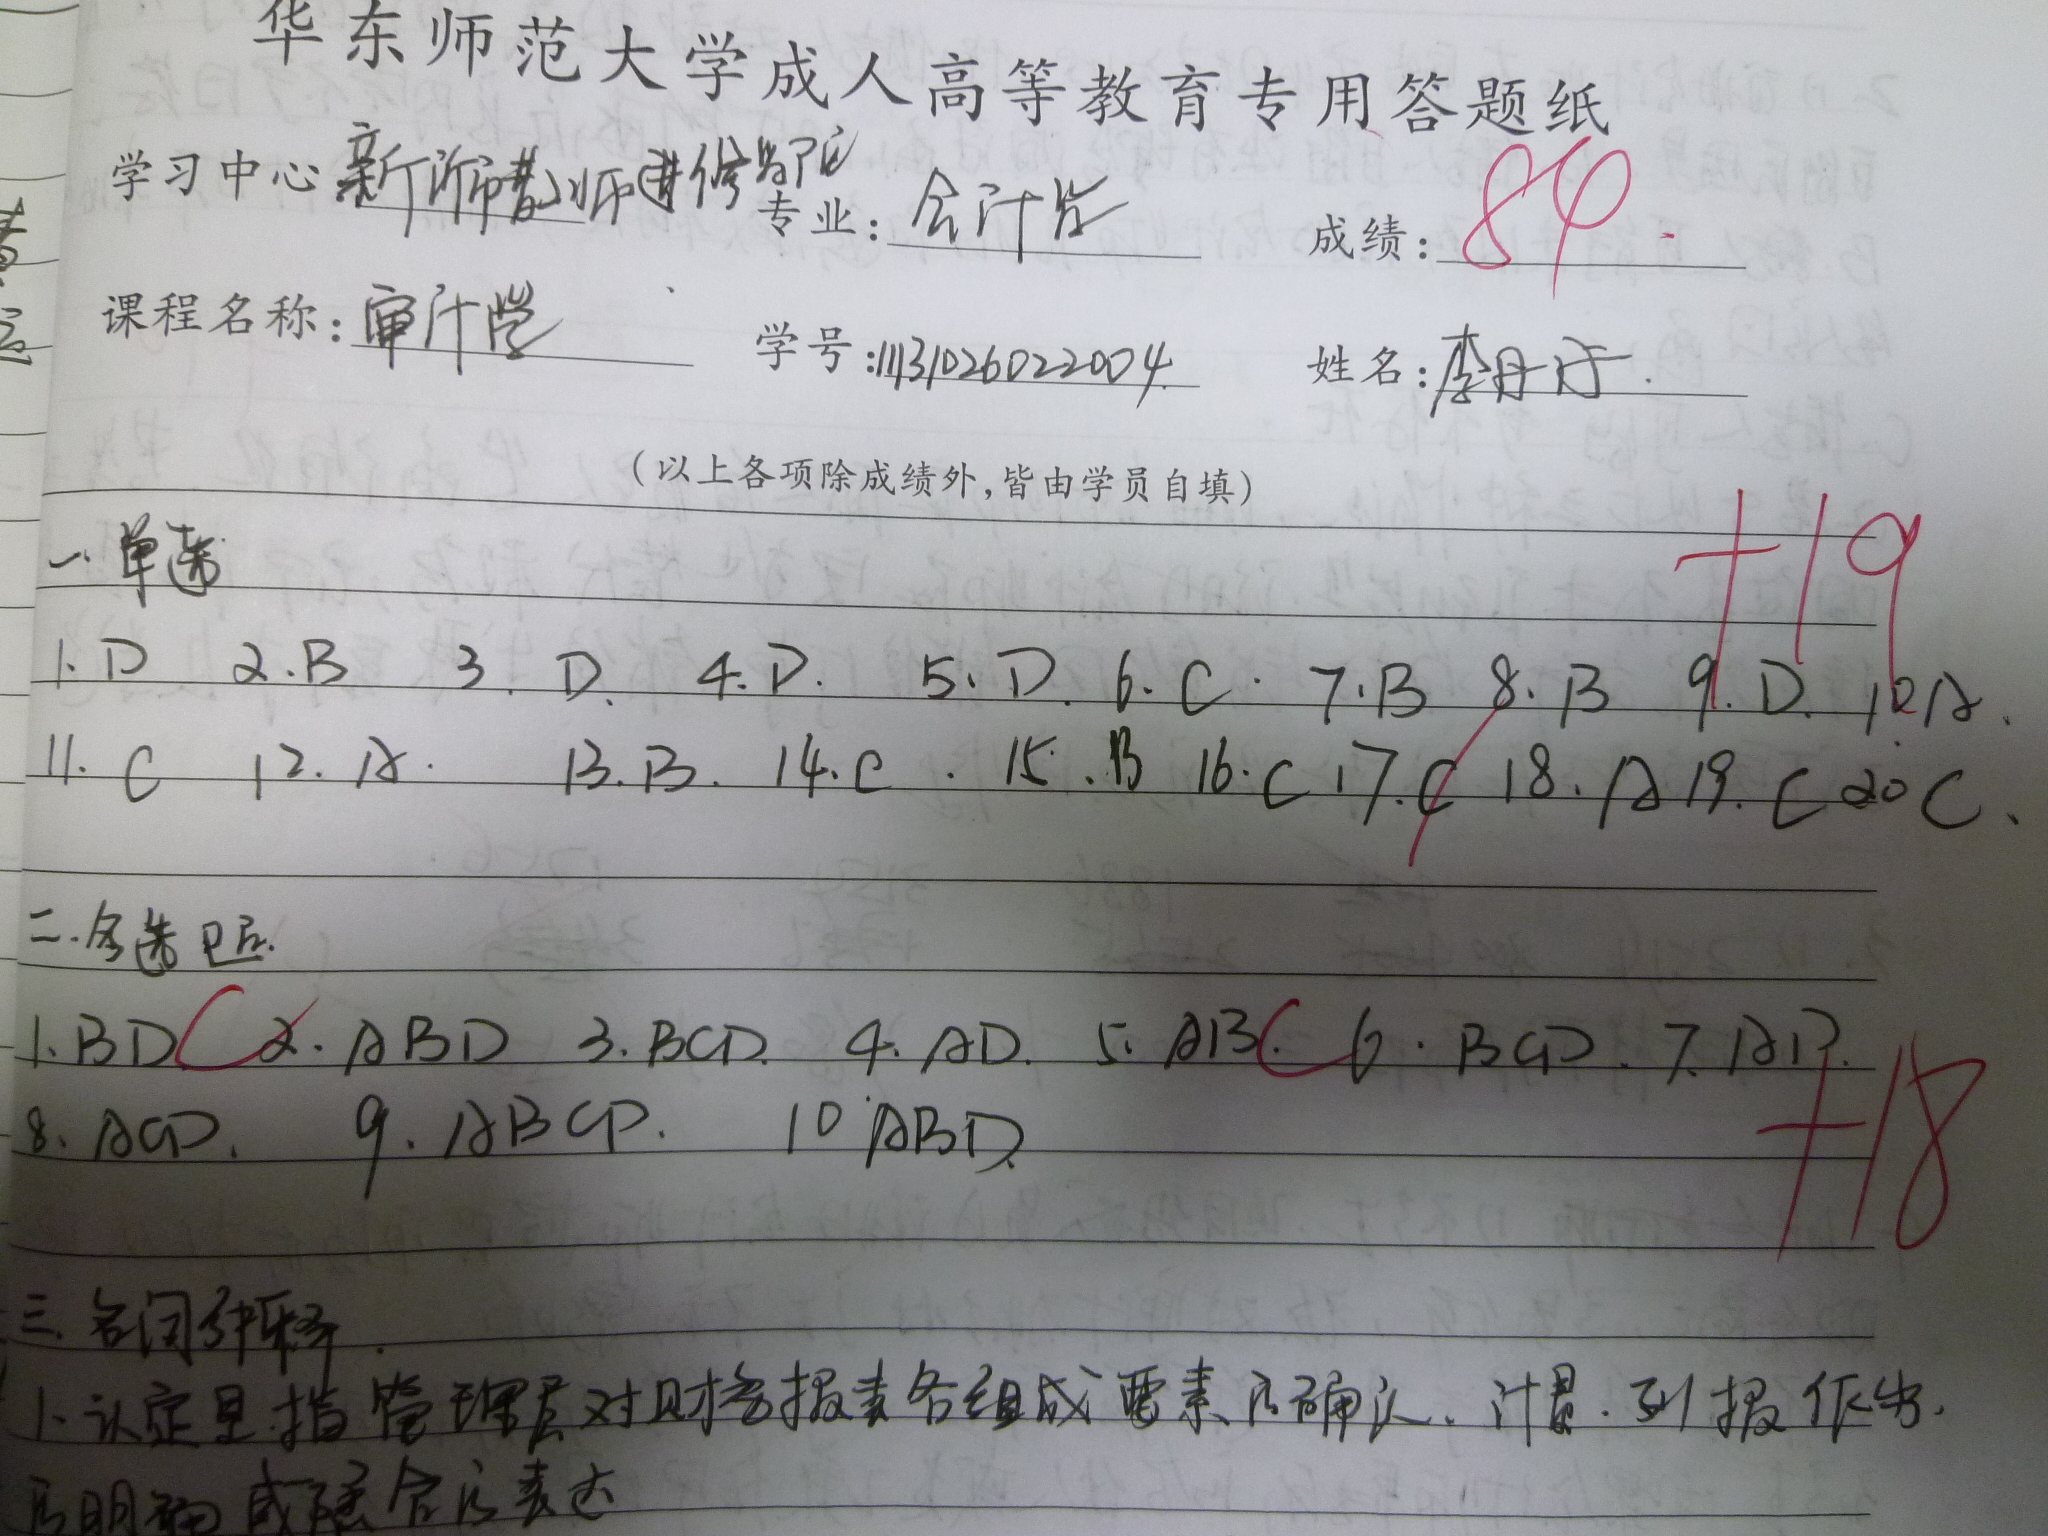 华东师范大学成人高等教育专用答题纸
学习中心 新沂市教师进修学院 专业: 会计学 成绩: 84.
课程名称: 审计学 学号: 11131026022004 姓名: 李丹
(以上各项除成绩外,皆由学员自填)
一. 单选 +19
1. D 2. B 3. D. 4. D. 5. D. 6. C. 7. B 8. B 9. D. 10 A.
11. C 12. A. 13. B. 14. C. 15. B 16. C 17. C 18. A 19. C 20 C.
二. 多选题.
1. BDC 2. ABD 3. BCD. 4. AD. 5. ABC. 6. BCD. 7. AD.
8. ACD. 9. ABCD. 10 ABD. +18
三. 名词解释.
1. 认定是指管理层对财务报表各组成要素的确认. 计量. 列报作出.
的明确或隐含的表达